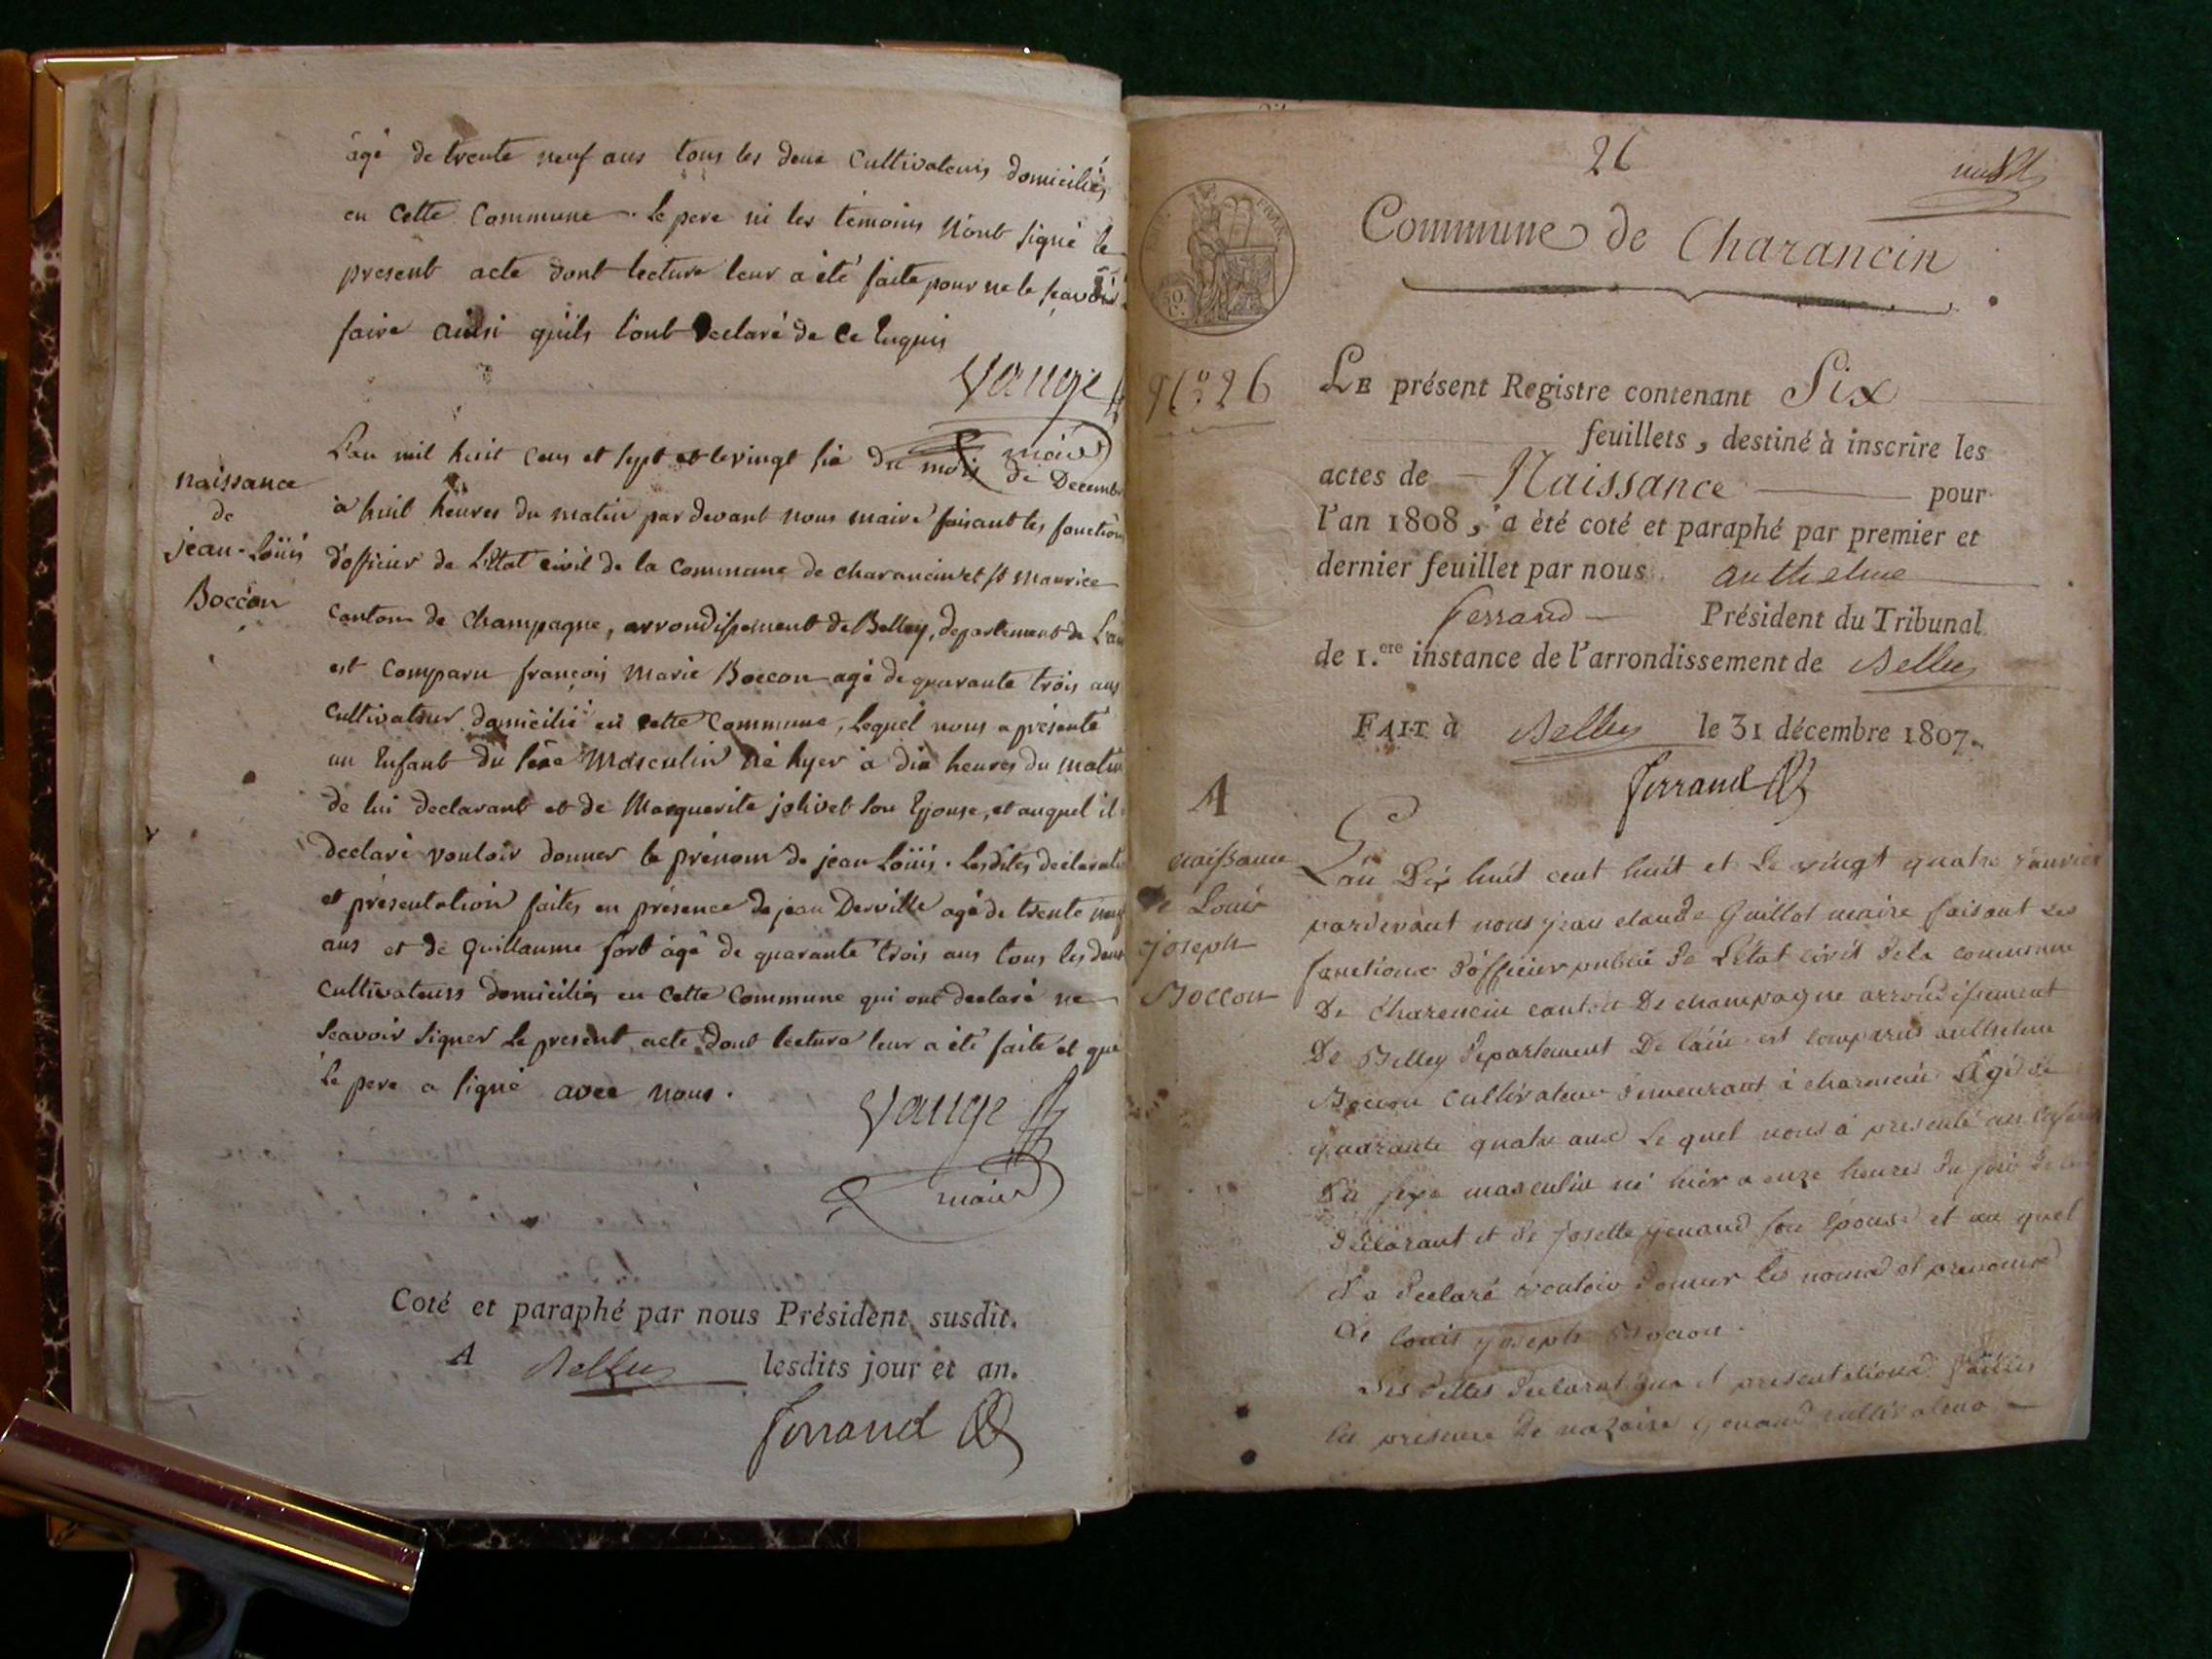 âgé de trente neuf ans tous les deux Cultivateurs domiciliés
en cette Commune. Le pere ni les témoins n'ont signé le
present acte dont lecture leur a été faite pour ne le sçavoir
faire ainsi quils l'ont declaré de ce Enquis
Vauge
maire
naissance
de
jean-Loüis
Boccon
L'an mil huit cens et sept et le vingt six du mois de Decembre
à huit heures du matin par devant nous maire faisant les fonctions
d'officier de L'Etat civil de la Commune de charancin et st maurice
canton de Champagne, arrondissement de Belley, departement de L'ain
est Comparu françois Marie Boccon agé de quarante trois ans
Cultivateur domicilié en cette Commune, Lequel nous a présenté
un Enfant du sexe Masculin né hyer à dix heures du matin
de lui declarant et de Marguerite jolivet son Epouse, et auquel il
declaré vouloir donner le prénom de jean Loüis. Lesdites declarations
et présentation faites en présence de jean Derville agé de trente neuf
ans et de Guillaume fort âgé de quarante trois ans tous les deux
Cultivateurs domiciliés en cette Commune qui ont declaré ne
sçavoir signer Le present acte dont lecture leur a été faite et que
le pere a signé avec nous.
Vauge
maire
Coté et paraphé par nous Président susdit.
A Belley lesdits jour et an.
Ferrand
26
Commune de Charancin
50
C.
N.º 26
LE présent Registre contenant Six
feuillets, destiné à inscrire les
actes de Naissance pour
l'an 1808, a été coté et paraphé par premier et
dernier feuillet par nous anthelme
Ferrand Président du Tribunal
de 1.ere instance de l'arrondissement de Belley
FAIT à Belley le 31 décembre 1807.
Ferrand
1
naissance
de Louis
joseph
Boccon
L'an Dix huit cent huit et le vingt quatre Janvier
pardevant nous jean claude Guillot maire faisant les
fonctions d'officier public de L'état civil de la commune
De Charencin canton De champagne arrondissement
De Belley Departement De l'ain est comparus anthelme
Boccon cultivateur Demeurant à charencin Agé de
quarante quatre ans Le quel nous à presenté un Enfant
Du sexe masculin né hier a onze heures du soir de lui
Déclarant et de Josette genand son épouse et au quel
il a Declaré vouloir Donner les noms et prenoms
De louis joseph Boccon.
Les dittes Declarations et presentations faites
En presence De nazaire genand cultivateur